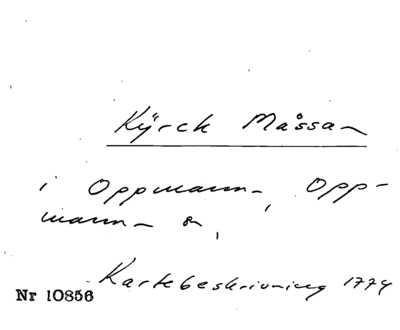 Kÿrck Måssa
i Oppmanna, Opp-
manna sn,
Kartebeskrivning 1774
Nr 10856